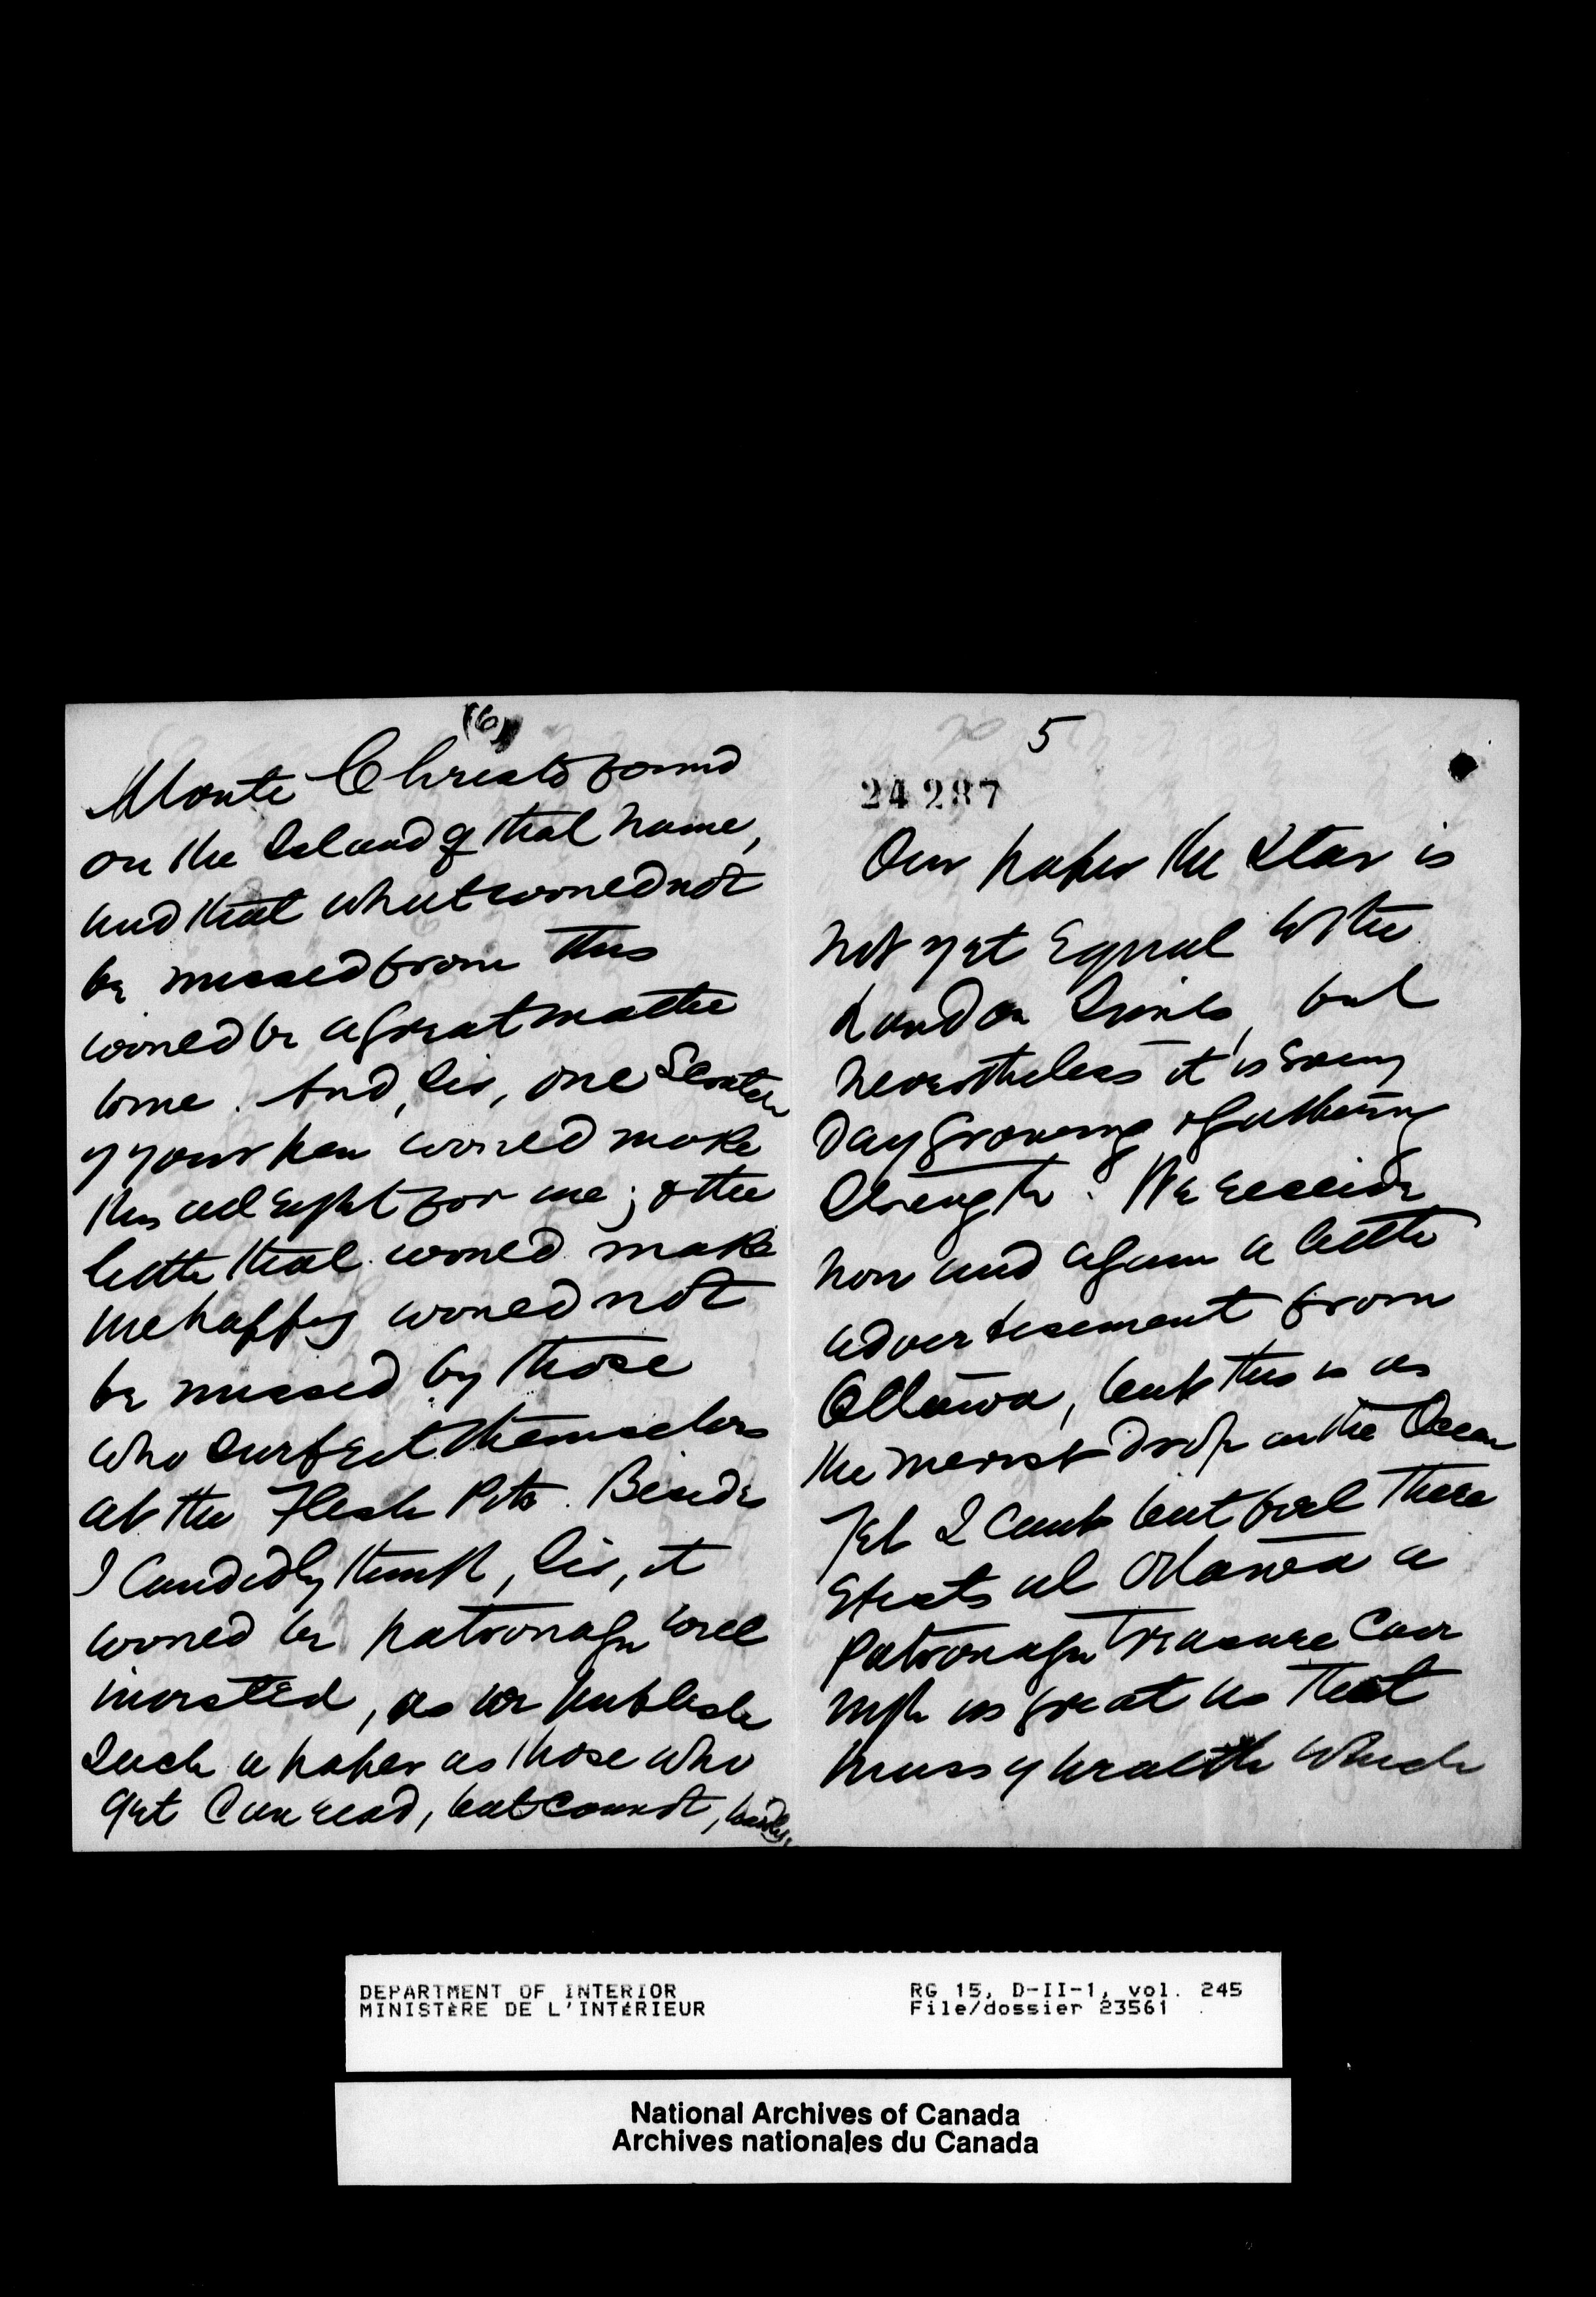 5
24287
Our paper the Star is
not yet Equal to the
London Times, but
nevertheless it is Every
day growing & gathering
Strength. We receive
now and again a little
advertisement from
Ottawa, but this is as
the merest drop in the Ocean
Yet I cant but feel there
Exists at Ottawa a
patronage treasure
as great as that
mass of wealth which
(6)
Monte Christo found
on the Island of that name,
and that what would not
be missed from this
would be a great matter
to me. And, Sir, one Scratch
of your pen would make
this all right for me; & the
little that would make
me happy would not
be missed by those
who surfeit themselves
at the Flesh Pots. Besides
I candidly think, Sir, it
would be patronage well
invested, as we publish
Such a paper as those who
get can read, but cannot,
DEPARTMENT OF INTERIOR
MINISTÈRE DE L'INTÉRIEUR
RG 15, D-II-1, vol. 245
File/dossier 23561
National Archives of Canada
Archives nationales du Canada